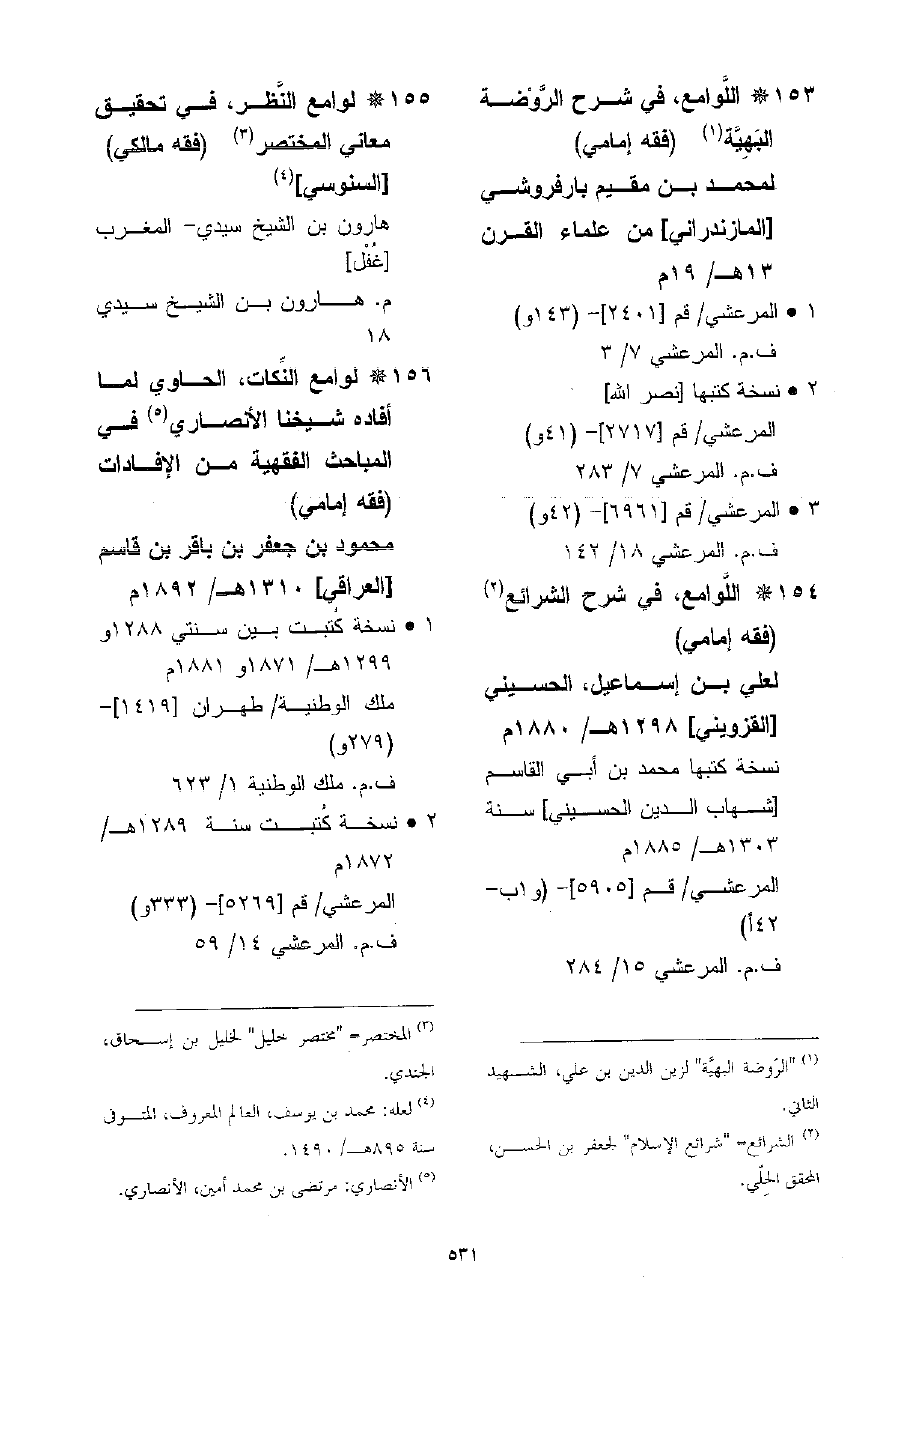 ١٥٣ * اللَّوامع، في شرح الرَّوْضة
البَهِيَّة(١) (فقه إمامي)
لمحمد بن مقيم بارفروشي
[المازندراني] من علماء القرن
١٣هـ/ ١٩م
١ • المرعشي/ قم [٢٤٠١]- (١٤٣و)
ف.م. المرعشي ٧/ ٣
٢ • نسخة كتبها [نصر الله]
المرعشي/ قم [٢٧١٧]- (٤١و)
ف.م. المرعشي ٧/ ٢٨٣
٣ • المرعشي/ قم [٦٩٦١]- (٤٢و)
ف.م. المرعشي ١٨/ ١٤٢
١٥٤ * اللَّوامع، في شرح الشرائع(٢)
(فقه إمامي)
لعلي بن إسماعيل، الحسيني
[القزويني] ١٢٩٨هـ/ ١٨٨٠م
نسخة كتبها محمد بن أبي القاسم
[شهاب الدين الحسيني] سنة
١٣٠٣هـ/ ١٨٨٥م
المرعشي/ قم [٥٩٠٥]- (و١ب-
٤٢أ)
ف.م. المرعشي ١٥/ ٢٨٤
(١) "الرَوضة البهيَّة" لزين الدين بن علي، الشهيد
الثاني.
(٢) الشرائع= "شرائع الإسلام" لجعفر بن الحسن،
المحقق الحِلّي.
١٥٥ * لوامع النَّظر، في تحقيق
معاني المختصر(٣) (فقه مالكي)
[السنوسي](٤)
هارون بن الشيخ سيدي- المغرب
[غُفْل]
م. هارون بن الشيخ سيدي
١٨
١٥٦ * لوامع النِّكات، الحاوي لما
أفاده شيخنا الأنصاري(٥) في
المباحث الفقهية من الإفادات
(فقه إمامي)
محمود بن جعفر بن باقر بن قاسم
[العراقي] ١٣١٠هـ/ ١٨٩٢م
١ • نسخة كُتبت بين سنتي ١٢٨٨و
١٢٩٩هـ/ ١٨٧١و ١٨٨١م
ملك الوطنية/ طهران [١٤١٩]-
(٢٧٩و)
ف.م. ملك الوطنية ١/ ٦٢٣
٢ • نسخة كُتبت سنة ١٢٨٩هـ/
١٨٧٢م
المرعشي/ قم [٥٢٦٩]- (٣٣٣و)
ف.م. المرعشي ١٤/ ٥٩
(٣) المختصر= "مختصر خليل" لخليل بن إسحاق،
الجندي.
(٤) لعله: محمد بن يوسف، العالم المعروف، المتوفى
سنة ٨٩٥هـ/ ١٤٩٠.
(٥) الأنصاري: مرتضى بن محمد أمين، الأنصاري.
٥٣١